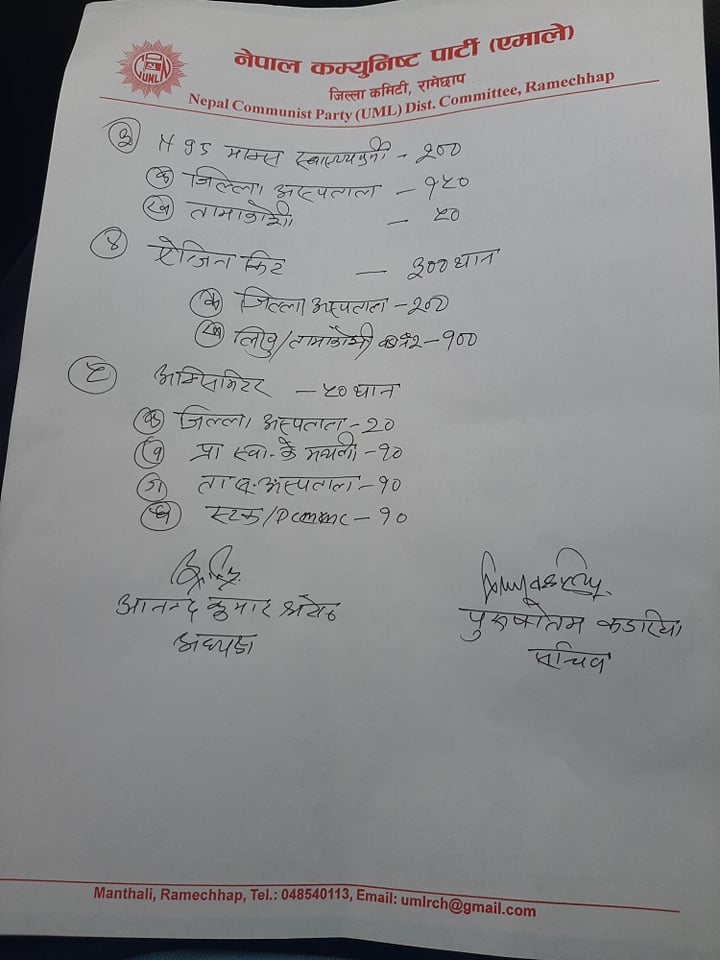 नेपाल कम्युनिष्ट पार्टी (एमाले)
जिल्ला कमिटी, रामेछाप
Nepal Communist Party (UML) Dist. Committee, Ramechhap
UML
३ N 95 मास्क - २००
क जिल्ला अस्पताल - १५०
ख तामाकोशी - ५०
४ एन्टिजन किट - ३०० थान
क जिल्ला अस्पताल - २००
ख लिखु/तामाकोशी - १००
५ अक्सिमिटर - ५० थान
क जिल्ला अस्पताल - 20
ख प्रा स्वा. के मन्थली - १०
ग ता अस्पताल - १०
घ स्टक / - १०
आनन्द कुमार श्रेष्ठ
अध्यक्ष
पुरुषोतम कडरिया
सचिव
Manthali, Ramechhap, Tel.: 048540113, Email: umlrch@gmail.com